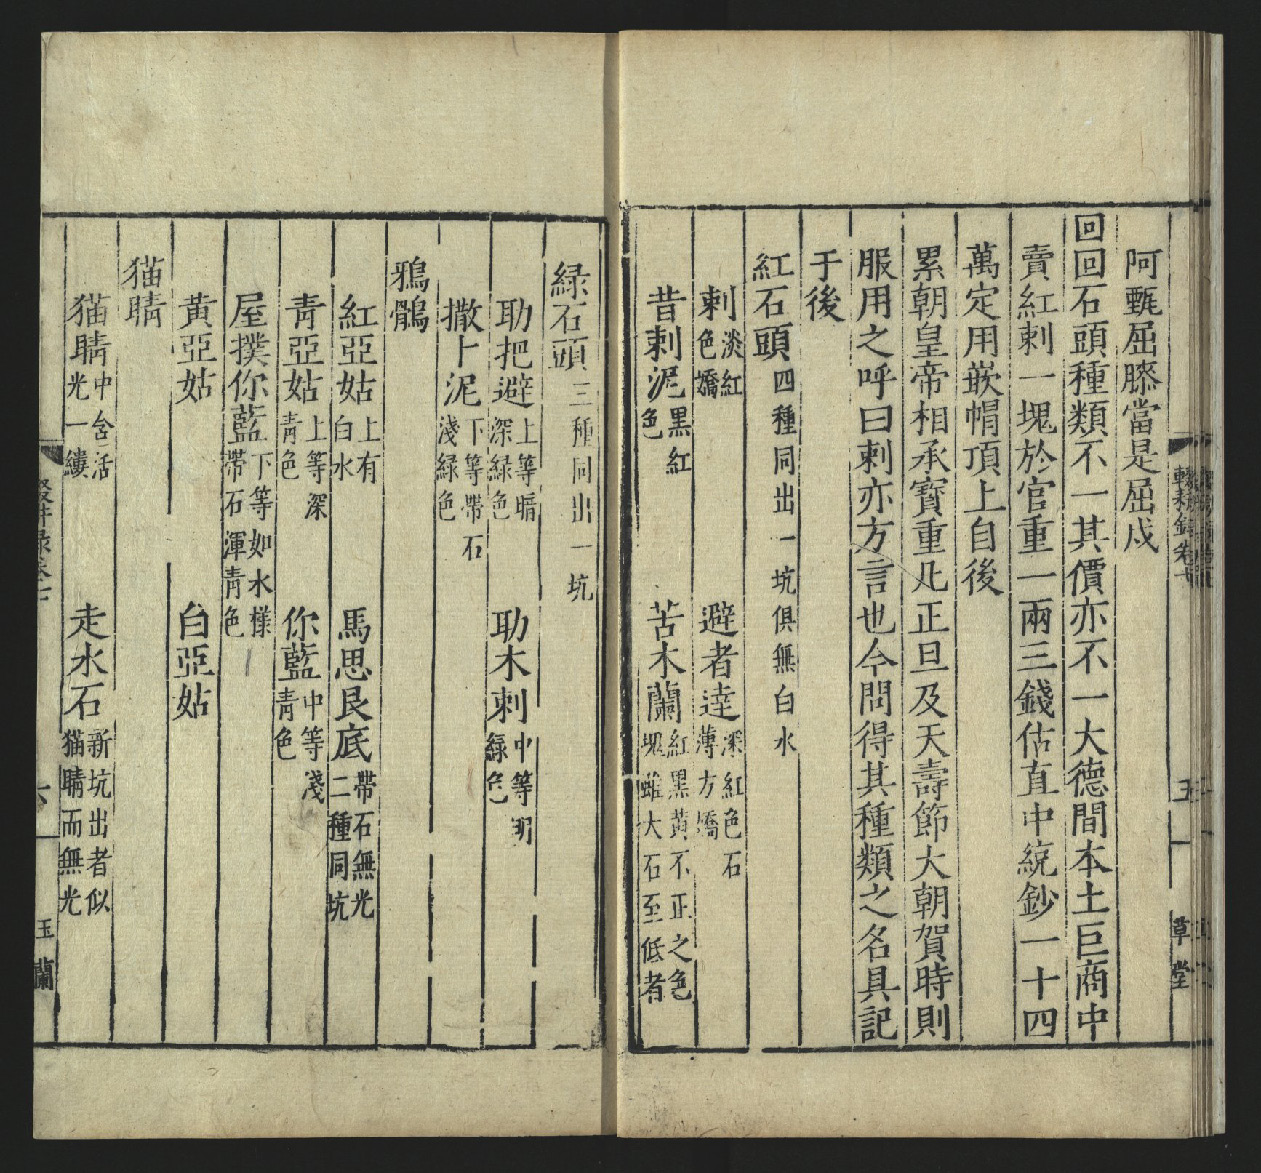 阿甄屈膝當是屈戍
回回石頭種類不一其價亦不一大德間本土巨商中
賣紅剌一塊於官重一兩三錢估直中統鈔一十四
萬定用嵌帽頂上自後
累朝皇帝相承寳重凡正旦及天壽節大朝賀時則
服用之呼曰剌亦方言也今問得其種類之名具記
于後
紅石頭四種同出一坑俱無白水
剌淡紅色嬌 避者達深紅色石薄方嬌
昔剌泥黑紅色 苦木蘭紅黑黄不正之色塊雖大石至低者
輟耕錄卷七 五 草堂
緑石頭三種同出一坑
助把避上等暗深緑色 助木剌中等明緑色
撒卜泥下等帶石淺緑色
鴉鶻
紅亞姑上有白水 馬思艮底帶石無光二種同坑
青亞姑上等深青色 你藍中等淺青色
屋撲你藍下等如水樣帶石渾青色
黄亞姑 白亞姑
猫睛
猫睛中含活光一縷 走水石新坑出者似猫睛而無光
輟耕錄卷七 六 玉蘭